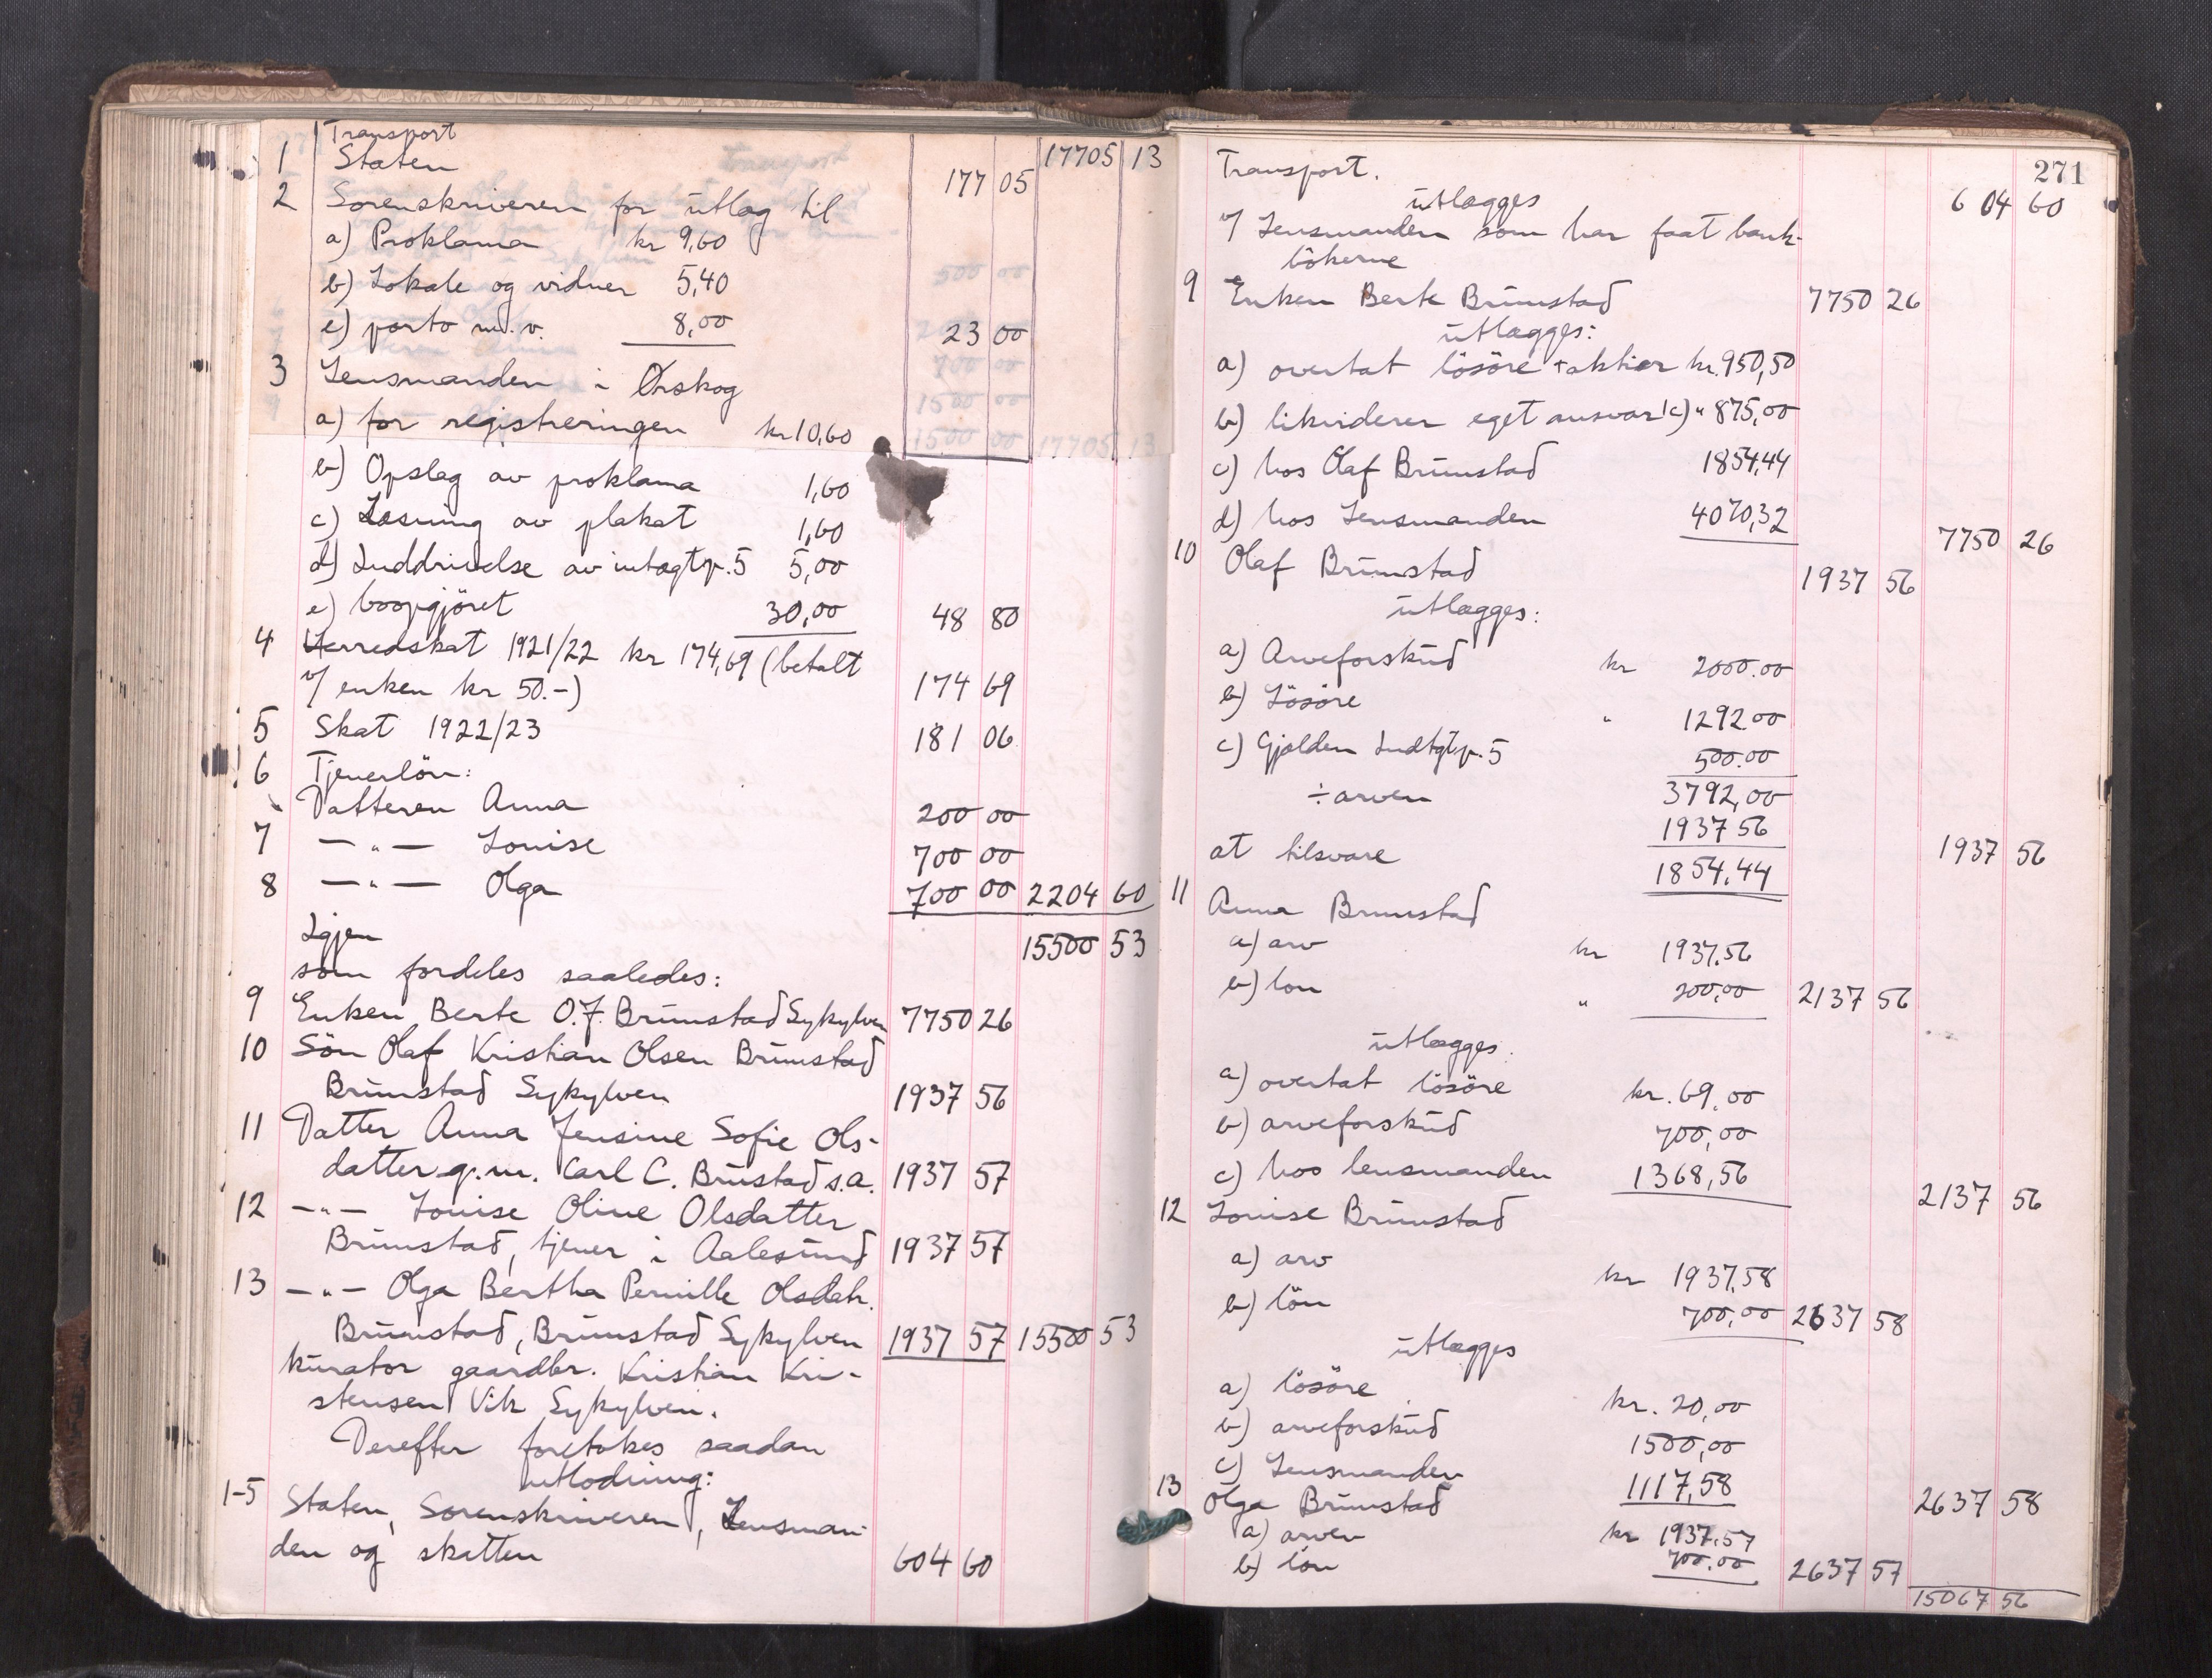 Transport 17705 13
1 Staten 177 05
2 Sorenskriveren for utlæg til
a) Proklama kr 9,60
b) Lokale og vidner 5,40
c) porto m.v. 8,00 23 00
3 Lensmanden i Ørskog
a) for registreringen kr 10,60
b) Opslag av proklama 1,60
c) Læsning av plakat 1,60
d) Inddrivelse av intægtp. 5 5,00
e) boopgjöret 30,00 48 80
4 Herredskat 1921/22 kr 174,69 (betalt
v/ enken kr 50.-) 174 69
5 Skat 1922/23 181 06
6 Tjenerlön:
Datteren Anna 200 00
7 — " — Louise 700 00
8 — " — Olga 700 00 2204 60
Igjen 15500 53
som fordeles saaledes:
9 Enken Berte O.J. Brunstad Sykylven 7750 26
10 Sön Olaf Kristian Olsen Brunstad
Brunstad Sykylven 1937 56
11 Datter Anna Jensine Sofie Ols-
datter g.m. Carl C. Brustad s.a. 1937 57
12 — " — Louise Oline Olsdatter
Brunstad, tjener i Aalesund 1937 57
13 — " — Olga Bertha Pernille Olsdatr.
Brunstad, Brunstad Sykylven 1937 57 15500 53
kurator gaardbr. Kristian Kri-
stensen Vik Sykylven.
Derefter foretokes saadan
utlodning:
1-5 Staten, Sorenskriveren, Lensman-
den og skatten 604 60
271
Transport. 604 60
utlægges
v/ Lensmanden som har faat bank-
bökerne
9 Enken Berte Brunstad 7750 26
utlægges:
a) overtat lösöre + aktier kr. 950,50
b) likviderer eget ansvar 1c) " 875,00
c) hos Olaf Brunstad 1854,44
d) hos Lensmanden 4070,32 7750 26
10 Olaf Brunstad 1937 56
utlægges:
a) Arveforskud kr 2000.00
b) Lösöre " 1292 00
c) Gjælden Indtgtp. 5 500.00
3792,00
÷ arven 1937 56
at tilsvare 1854.44 1937 56
11 Anna Brunstad
a) arv kr 1937.56
b) lon " 200,00 2137 56
utlægges:
a) overtat lösöre kr. 69,00
b) arveforskud 700,00
c) hos lensmanden 1368,56 2137 56
12 Louise Brunstad
a) arv kr 1937,58
b) lön 700,00 2637 58
utlægges
a) lösöre kr. 20,00
b) arveforskud 1500,00
c) Lensmanden 1117,58 2637 58
13 Olga Brunstad
a) arven kr 1937.57
b) lön 700.00 2637 57
15067 56